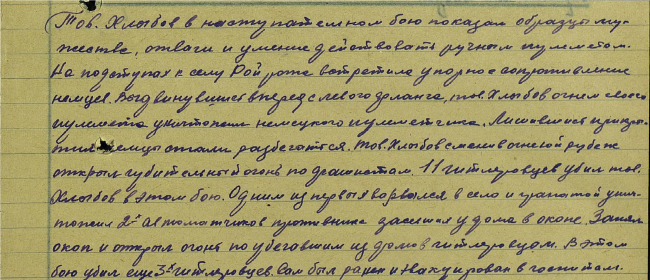 Тов. Хлыбов в наступательном бою показал образцы му-
жества, отваги и умение действовать ручным пулеметом.
На подступах к селу Рой рота встретила упорное сопротивление
немцев. Выдвинувшись вперед с левого фланга, тов. Хлыбов огнем своего
пулемета уничтожил немецкого пулеметчика. Лишившись прикры-
тия немцы стали разбегаться. Тов. Хлыбов сменив огневой рубеж
открыл губительный огонь по десанту. 11 гитлеровцев убил тов.
Хлыбов в этом бою. Одним из первых ворвался в село и гранатой унич-
тожил 2х автоматчиков противника засевших у дома в окопе. Занял
окоп и открыл огонь по убегавшим из домов гитлеровцам. В этом
бою убил еще 3х гитлеровцев. Сам был ранен и эвакуирован в госпиталь.